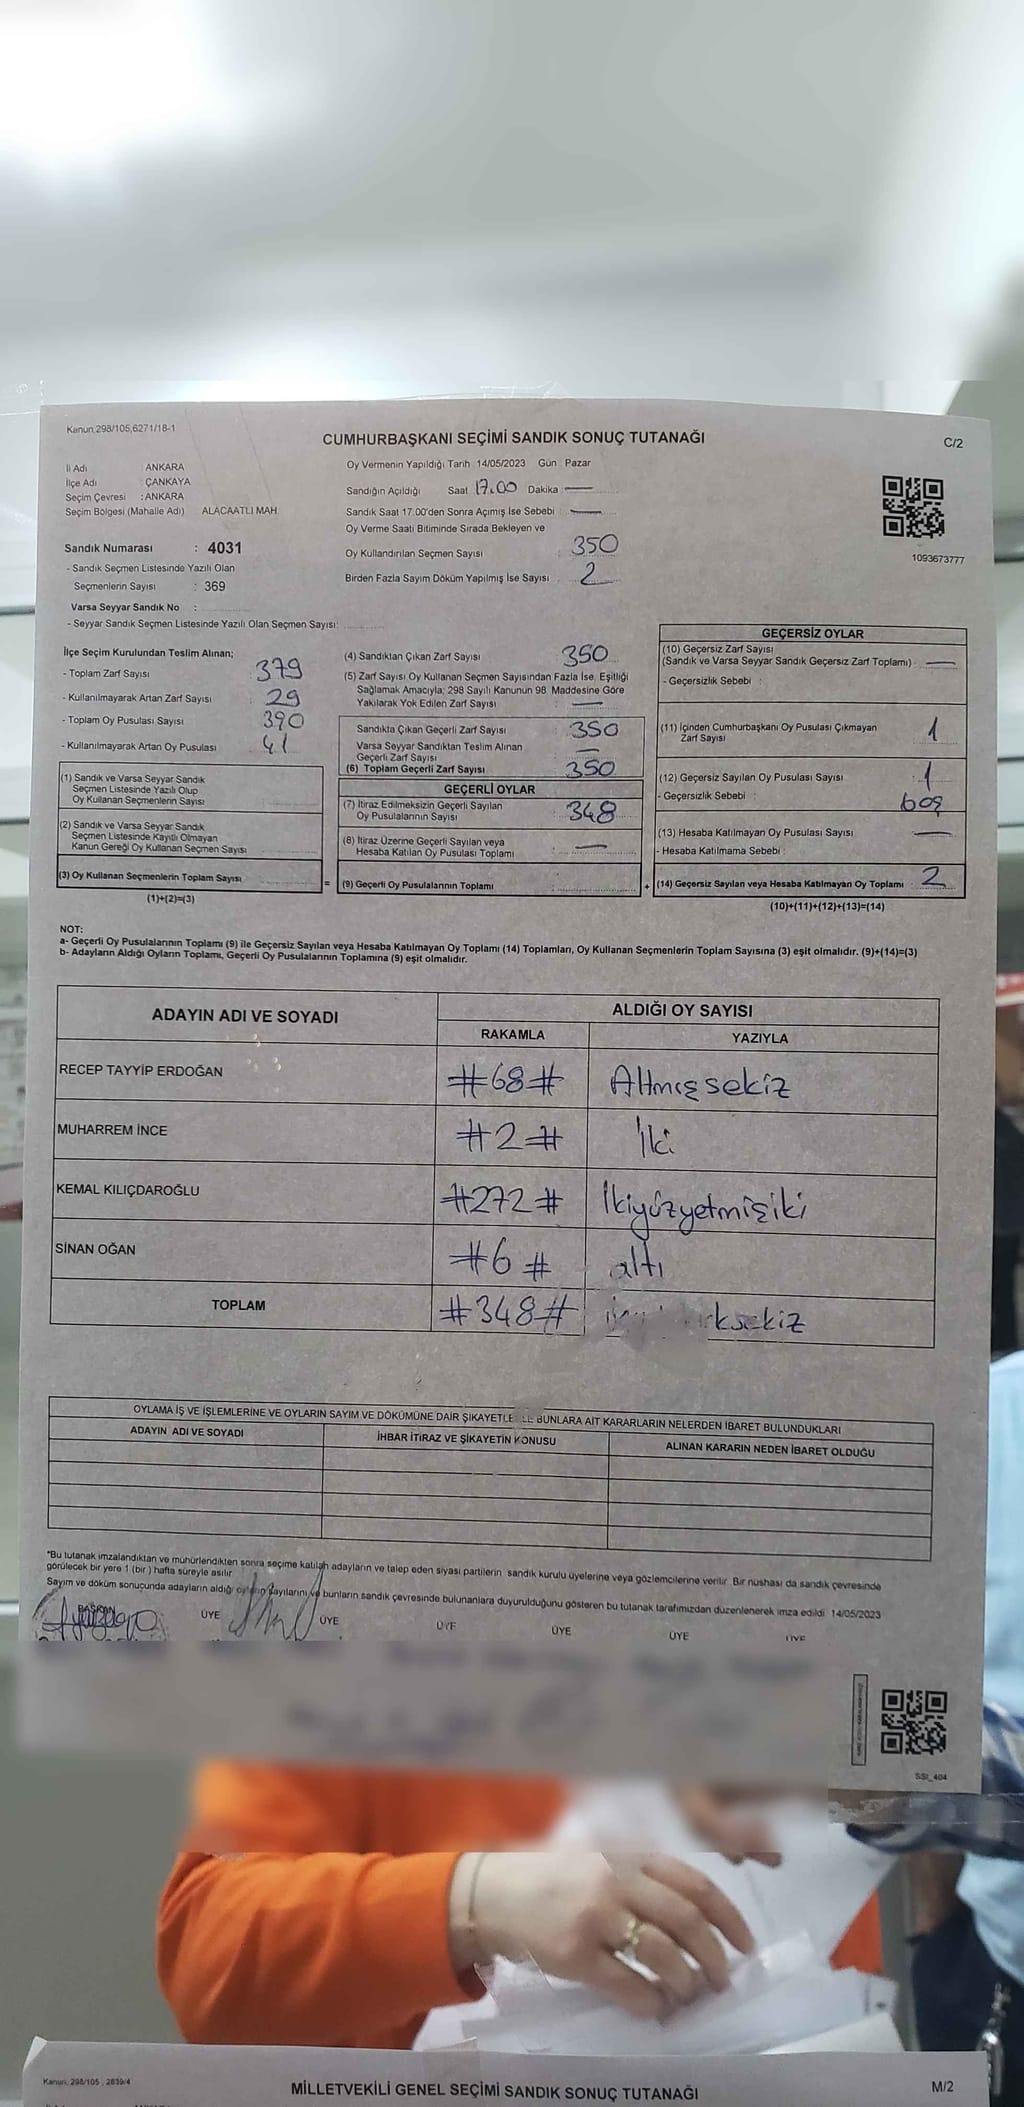 Kanun 298/105,6271/18-1
CUMHURBAŞKANI SEÇİMİ SANDIK SONUÇ TUTANAĞI
C/2
İl Adı : ANKARA
İlçe Adı : ÇANKAYA
Seçim Çevresi : ANKARA
Seçim Bölgesi (Mahalle Adı) ALACAATLI MAH.
Sandık Numarası : 4031
- Sandık Seçmen Listesinde Yazılı Olan
Seçmenlerin Sayısı : 369
Varsa Seyyar Sandık No :
- Seyyar Sandık Seçmen Listesinde Yazılı Olan Seçmen Sayısı:
Oy Vermenin Yapıldığı Tarih 14/05/2023 Gün Pazar
Sandığın Açıldığı Saat 17.00 Dakika —
Sandık Saat 17.00'den Sonra Açımış İse Sebebi : —
Oy Verme Saati Bitiminde Sırada Bekleyen ve
Oy Kullandırılan Seçmen Sayısı : 350
Birden Fazla Sayım Döküm Yapılmış İse Sayısı : 2
1093673777
İlçe Seçim Kurulundan Teslim Alınan;
- Toplam Zarf Sayısı : 379
- Kullanılmayarak Artan Zarf Sayısı : 29
- Toplam Oy Pusulası Sayısı : 390
- Kullanılmayarak Artan Oy Pusulası : 41
(1) Sandık ve Varsa Seyyar Sandık
Seçmen Listesinde Yazılı Olup
Oy Kullanan Seçmenlerin Sayısı
(2) Sandık ve Varsa Seyyar Sandık
Seçmen Listesinde Kayıtlı Olmayan
Kanun Gereği Oy Kullanan Seçmen Sayısı
(3) Oy Kullanan Seçmenlerin Toplam Sayısı
(1)+(2)=(3)
(4) Sandıktan Çıkan Zarf Sayısı : 350
(5) Zarf Sayısı Oy Kullanan Seçmen Sayısından Fazla İse, Eşitliği
Sağlamak Amacıyla; 298 Sayılı Kanunun 98. Maddesine Göre
Yakılarak Yok Edilen Zarf Sayısı : —
Sandıkta Çıkan Geçerli Zarf Sayısı : 350
Varsa Seyyar Sandıktan Teslim Alınan
Geçerli Zarf Sayısı : —
(6) Toplam Geçerli Zarf Sayısı : 350
GEÇERLİ OYLAR
(7) İtiraz Edilmeksizin Geçerli Sayılan
Oy Pusulalarının Sayısı : 348
(8) İtiraz Üzerine Geçerli Sayılan veya
Hesaba Katılan Oy Pusulası Toplamı : —
= (9) Geçerli Oy Pusulalarının Toplamı
GEÇERSİZ OYLAR
(10) Geçersiz Zarf Sayısı
(Sandık ve Varsa Seyyar Sandık Geçersiz Zarf Toplamı) : —
- Geçersizlik Sebebi :
(11) İçinden Cumhurbaşkanı Oy Pusulası Çıkmayan
Zarf Sayısı : 1
(12) Geçersiz Sayılan Oy Pusulası Sayısı : 1
- Geçersizlik Sebebi : boş
(13) Hesaba Katılmayan Oy Pusulası Sayısı : —
- Hesaba Katılmama Sebebi :
+ (14) Geçersiz Sayılan veya Hesaba Katılmayan Oy Toplamı : 2
(10)+(11)+(12)+(13)=(14)
NOT:
a- Geçerli Oy Pusulalarının Toplamı (9) ile Geçersiz Sayılan veya Hesaba Katılmayan Oy Toplamı (14) Toplamları, Oy Kullanan Seçmenlerin Toplam Sayısına (3) eşit olmalıdır. (9)+(14)=(3)
b- Adayların Aldığı Oyların Toplamı, Geçerli Oy Pusulalarının Toplamına (9) eşit olmalıdır.
ADAYIN ADI VE SOYADI ALDIĞI OY SAYISI
RAKAMLA YAZIYLA
RECEP TAYYİP ERDOĞAN #68# Altmışsekiz
MUHARREM İNCE #2# İki
KEMAL KILIÇDAROĞLU #272# İkiyüzyetmişiki
SİNAN OĞAN #6# altı
TOPLAM #348#
OYLAMA İŞ VE İŞLEMLERİNE VE OYLARIN SAYIM VE DÖKÜMÜNE DAİR BUNLARA AİT KARARLARIN NELERDEN İBARET BULUNDUKLARI
ADAYIN ADI VE SOYADI İHBAR İTİRAZ VE ŞİKAYETİN KONUSU ALINAN KARARIN NEDEN İBARET OLDUĞU
*Bu tutanak imzalandıktan ve mühürlendikten sonra seçime katılan adayların ve talep eden siyasi partilerin sandık kurulu üyelerine veya gözlemcilerine verilir. Bir nüshası da sandık çevresinde
görülecek bir yere 1 (bir) hafta süreyle asılır.
Sayım ve döküm sonuçunda adayların aldığı oyların sayılarını ve bunların sandık çevresinde bulunanlara duyurulduğunu gösteren bu tutanak tarafımızdan düzenlenerek imza edildi. 14/05/2023
BAŞKAN ÜYE ÜYE ÜYE ÜYE ÜYE ÜYE
SSI_404
Kanun, 298/105 , 2839/4
MİLLETVEKİLİ GENEL SEÇİMİ SANDIK SONUÇ TUTANAĞI
M/2